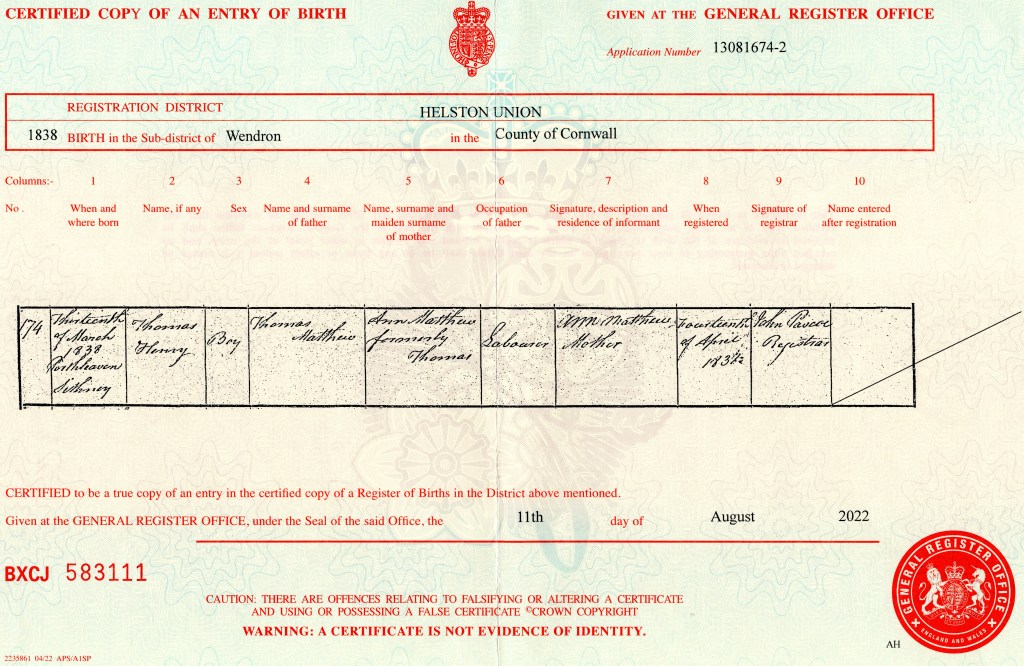 CERTIFIED COPY OF AN ENTRY OF BIRTH
GIVEN AT THE GENERAL REGISTER OFFICE
Application Number 13081674-2
REGISTRATION DISTRICT HELSTON UNION
1838 BIRTH in the Sub-district of Wendron in the County of Cornwall
Columns:- 1 2 3 4 5 6 7 8 9 10
No . When and where born
Name, if any
Sex
Name and surname of father
Name, surname and maiden surname of mother
Occupation of father
Signature, description and residence of informant
When registered
Signature of registrar
Name entered after registration
174
Thirteenth
of March
1838
Porthleaven
Sithney
Thomas
Henry
Boy
Thomas
Matthew
Ann Matthew
formerly
Thomas
Labourer
Ann Matthew
Mother
Fourteenth
of April
John Pascoe
Registrar
CERTIFIED to be a true copy of an entry in the certified copy of a Register of Births in the District above mentioned.
Given at the GENERAL REGISTER OFFICE, under the Seal of the said Office, the 11th day of August 2022
BXCJ 583111
CAUTION: THERE ARE OFFENCES RELATING TO FALSIFYING OR ALTERING A CERTIFICATE
AND USING OR POSSESSING A FALSE CERTIFICATE ©CROWN COPYRIGHT
WARNING: A CERTIFICATE IS NOT EVIDENCE OF IDENTITY.
GENERAL REGISTER OFFICE
ENGLAND AND WALES
AH
2235861 04/22 APS/A1SP